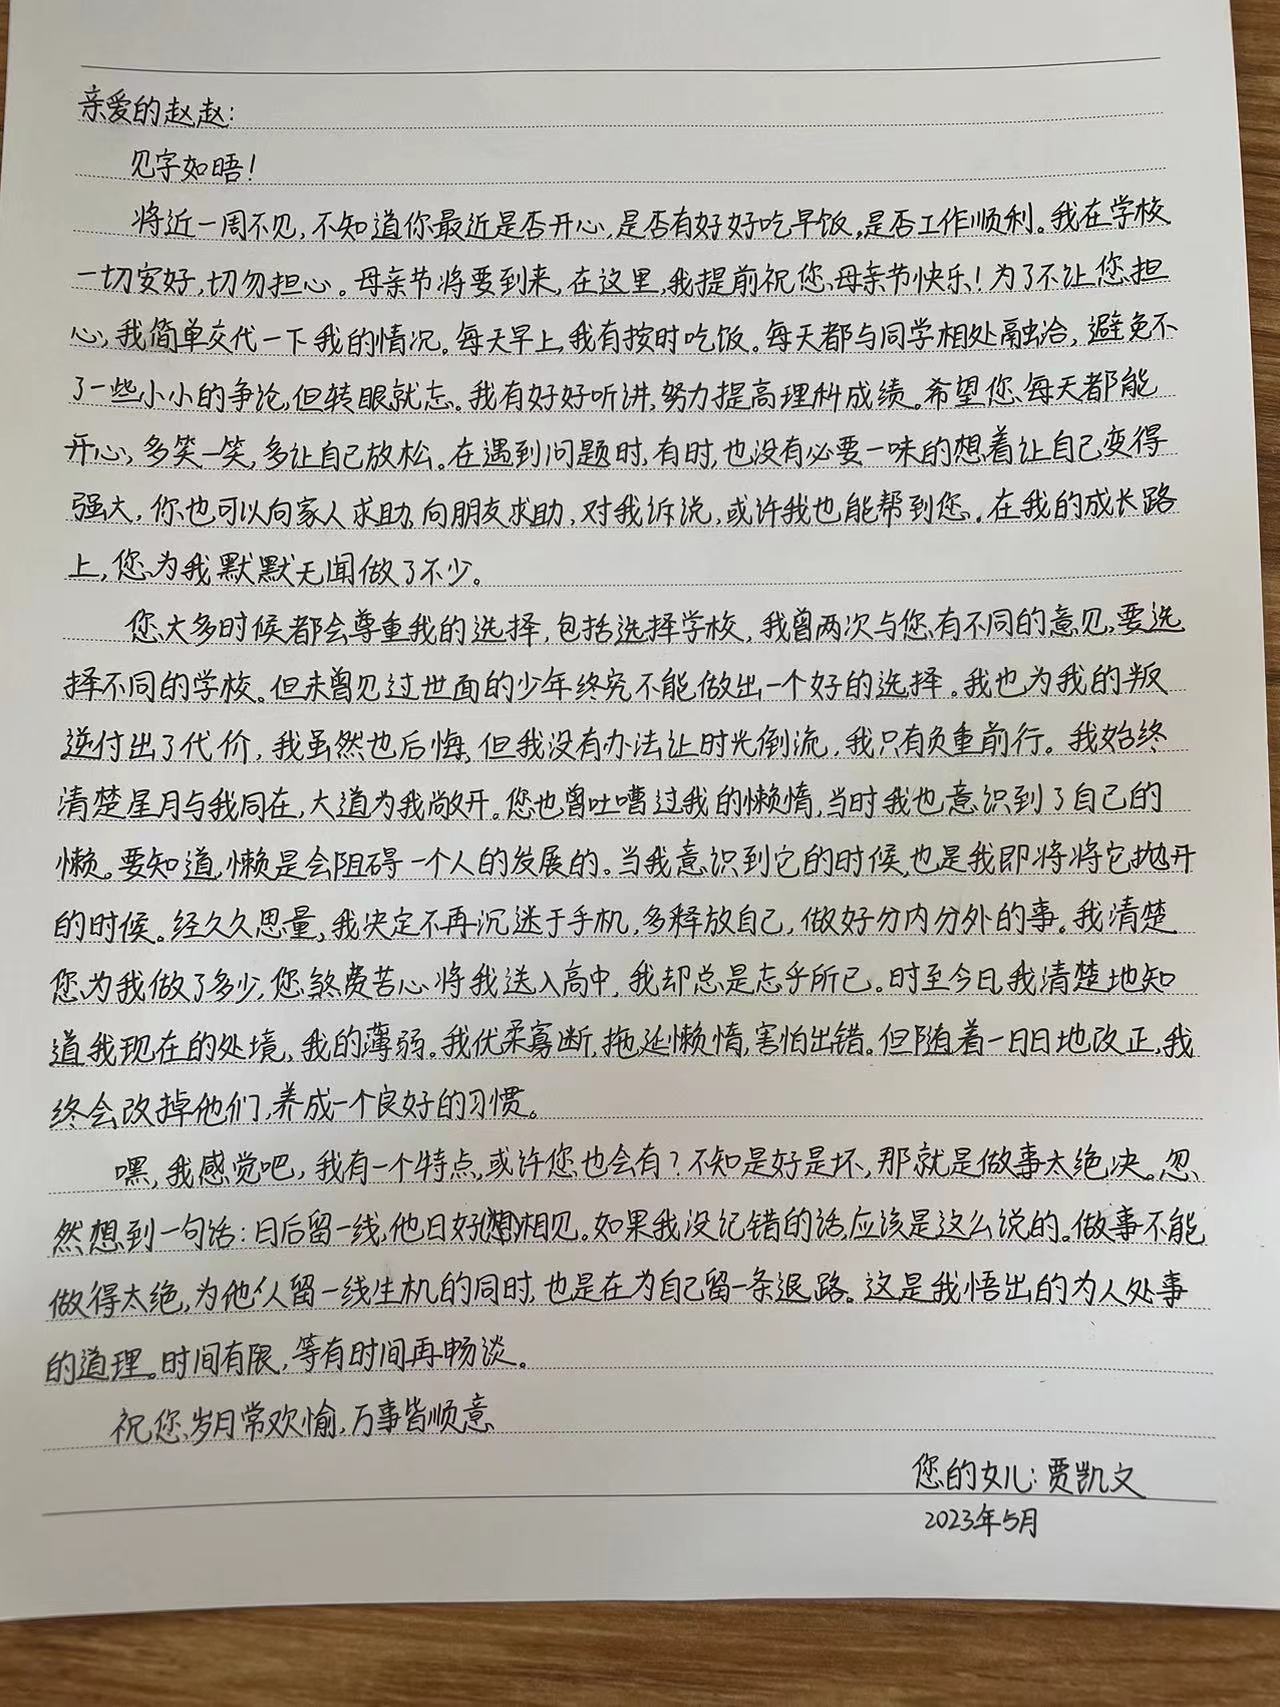 亲爱的赵赵:
见字如晤!
将近一周不见,不知道你最近是否开心,是否有好好吃早饭,是否工作顺利。我在学校
一切安好,切勿担心。母亲节将要到来,在这里,我提前祝您母亲节快乐!为了不让您担
心,我简单交代一下我的情况。每天早上,我有按时吃饭。每天都与同学相处融洽,避免不
了一些小小的争论,但转眼就忘。我有好好听讲,努力提高理科成绩。希望您每天都能
开心,多笑一笑,多让自己放松。在遇到问题时,有时,也没有必要一味的想着让自己变得
强大,你也可以向家人求助,向朋友求助,对我诉说,或许我也能帮到您。在我的成长路
上,您为我默默无闻做了不少。
您大多时候都会尊重我的选择,包括选择学校,我曾两次与您有不同的意见,要选
择不同的学校。但未曾见过世面的少年终究不能做出一个好的选择。我也为我的叛
逆付出了代价,我虽然也后悔,但我没有办法让时光倒流,我只有负重前行。我始终
清楚星月与我同在,大道为我敞开。您也曾吐嘈过我的懒惰,当时我也意识到了自己的
懒。要知道,懒是会阻碍一个人的发展的。当我意识到它的时候,也是我即将将它抛开
的时候。经久久思量,我决定不再沉迷于手机,多释放自己,做好分内分外的事。我清楚
您为我做了多少,您煞费苦心将我送入高中,我却总是忘乎所已。时至今日,我清楚地知
道我现在的处境,我的薄弱。我优柔寡断,拖延懒惰,害怕出错。但随着一日日地改正,我
终会改掉他们,养成一个良好的习惯。
嘿,我感觉吧,我有一个特点,或许您也会有?不知是好是坏,那就是做事太绝决。忽
然想到一句话:日后留一线,他日好想相见。如果我没记错的话,应该是这么说的。做事不能
做得太绝,为他人留一线生机的同时,也是在为自己留一条退路。这是我悟出的为人处事
的道理。时间有限,等有时间再畅谈。
祝您岁月常欢愉,万事皆顺意
您的女儿:贾凯文
2023年5月